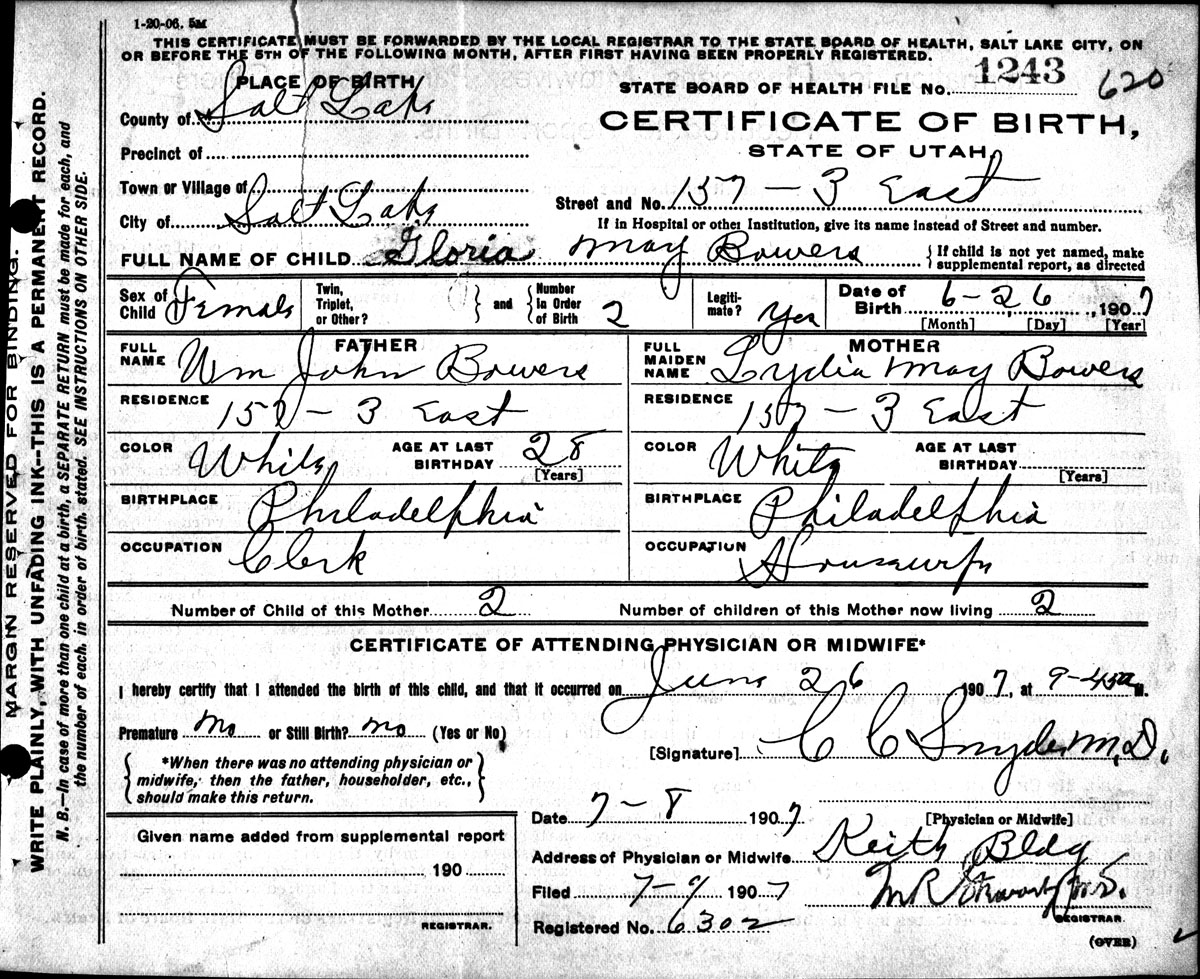 1-20-06. 5M
THIS CERTIFICATE MUST BE FORWARDED BY THE LOCAL REGISTRAR TO THE STATE BOARD OF HEALTH, SALT LAKE CITY, ON
OR BEFORE THE 5TH OF THE FOLLOWING MONTH, AFTER FIRST HAVING BEEN PROPERLY REGISTERED.
PLACE OF BIRTH
STATE BOARD OF HEALTH FILE No. 1243 620
County of Salt Lake
CERTIFICATE OF BIRTH,
Precinct of
STATE OF UTAH.
Town or Village of
Street and No. 157 - 3 East
City of Salt Lake
If in Hospital or other Institution, give its name instead of Street and number.
FULL NAME OF CHILD Gloria May Bowers { If child is not yet named, make
supplemental report, as directed
Sex of Child Female Twin, Triplet, or Other? { } and { Number In Order of Birth 2 Legiti-mate? Yes Date of Birth 6-26, 1907
[Month] [Day] [Year]
FATHER MOTHER
FULL NAME Wm John Bowers FULL MAIDEN NAME Lydia May Bowers
RESIDENCE 157 - 3 East RESIDENCE 157 - 3 East
COLOR White AGE AT LAST BIRTHDAY 28 [Years] COLOR White AGE AT LAST BIRTHDAY [Years]
BIRTHPLACE Philadelphia BIRTHPLACE Philadelphia
OCCUPATION Clerk OCCUPATION Housewife
Number of Child of this Mother 2 Number of children of this Mother now living 2
CERTIFICATE OF ATTENDING PHYSICIAN OR MIDWIFE*
I hereby certify that I attended the birth of this child, and that it occurred on June 26 1907, at 9-45a M.
Premature No or Still Birth? No (Yes or No)
[Signature] C C Snyder M.D.
{ *When there was no attending physician or
midwife, then the father, householder, etc.,
should make this return. }
Date 7-8 1907 [Physician or Midwife]
Given name added from supplemental report
Address of Physician or Midwife Keith Bldg
190
Filed 7-9 1907 M R
REGISTRAR. REGISTRAR.
Registered No. 6302
(OVER)
MARGIN RESERVED FOR BINDING.
WRITE PLAINLY, WITH UNFADING INK--THIS IS A PERMANENT RECORD.
N. B.—In case of more than one child at a birth, a SEPARATE RETURN must be made for each, and
the number of each, in order of birth, stated. SEE INSTRUCTIONS ON OTHER SIDE.